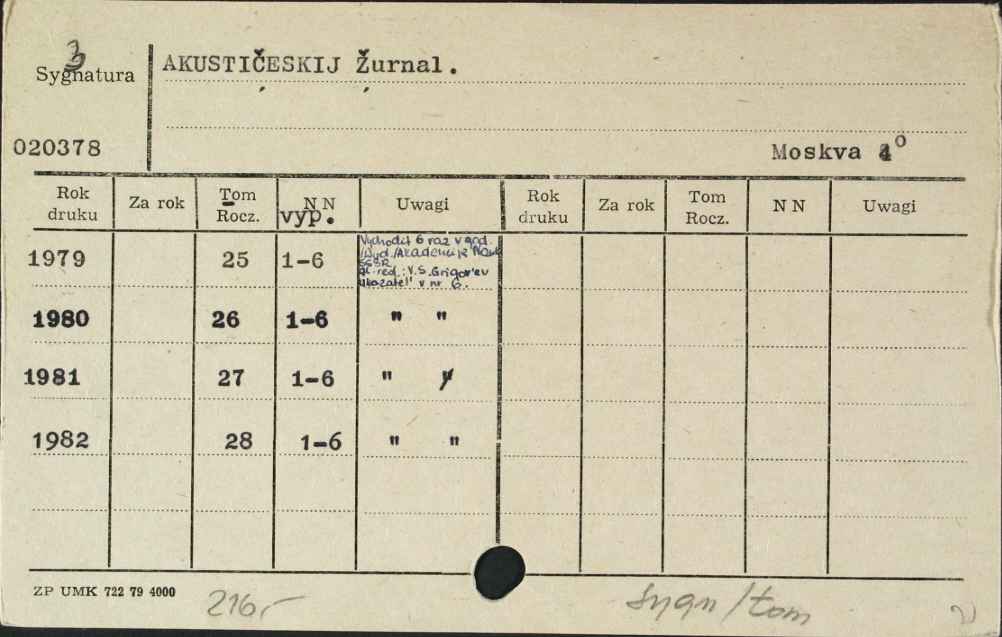 3
Sygnatura AKUSTIČESKIJ Žurnal.
020378 Moskva 4º
Rok druku Za rok Tom Rocz. NN vyp. Uwagi Rok druku Za rok Tom Rocz. NN Uwagi
1979 25 1-6 Vychodit 6 raz v god.
/Wyd./Akademija Nauk
SSSR
gl. red.: V.S. Grigor'ev
ukazatel' v nr 6.
1980 26 1-6 " "
1981 27 1-6 " "
1982 28 1-6 " "
ZP UMK 722 79 4000
216,- sygn/tom